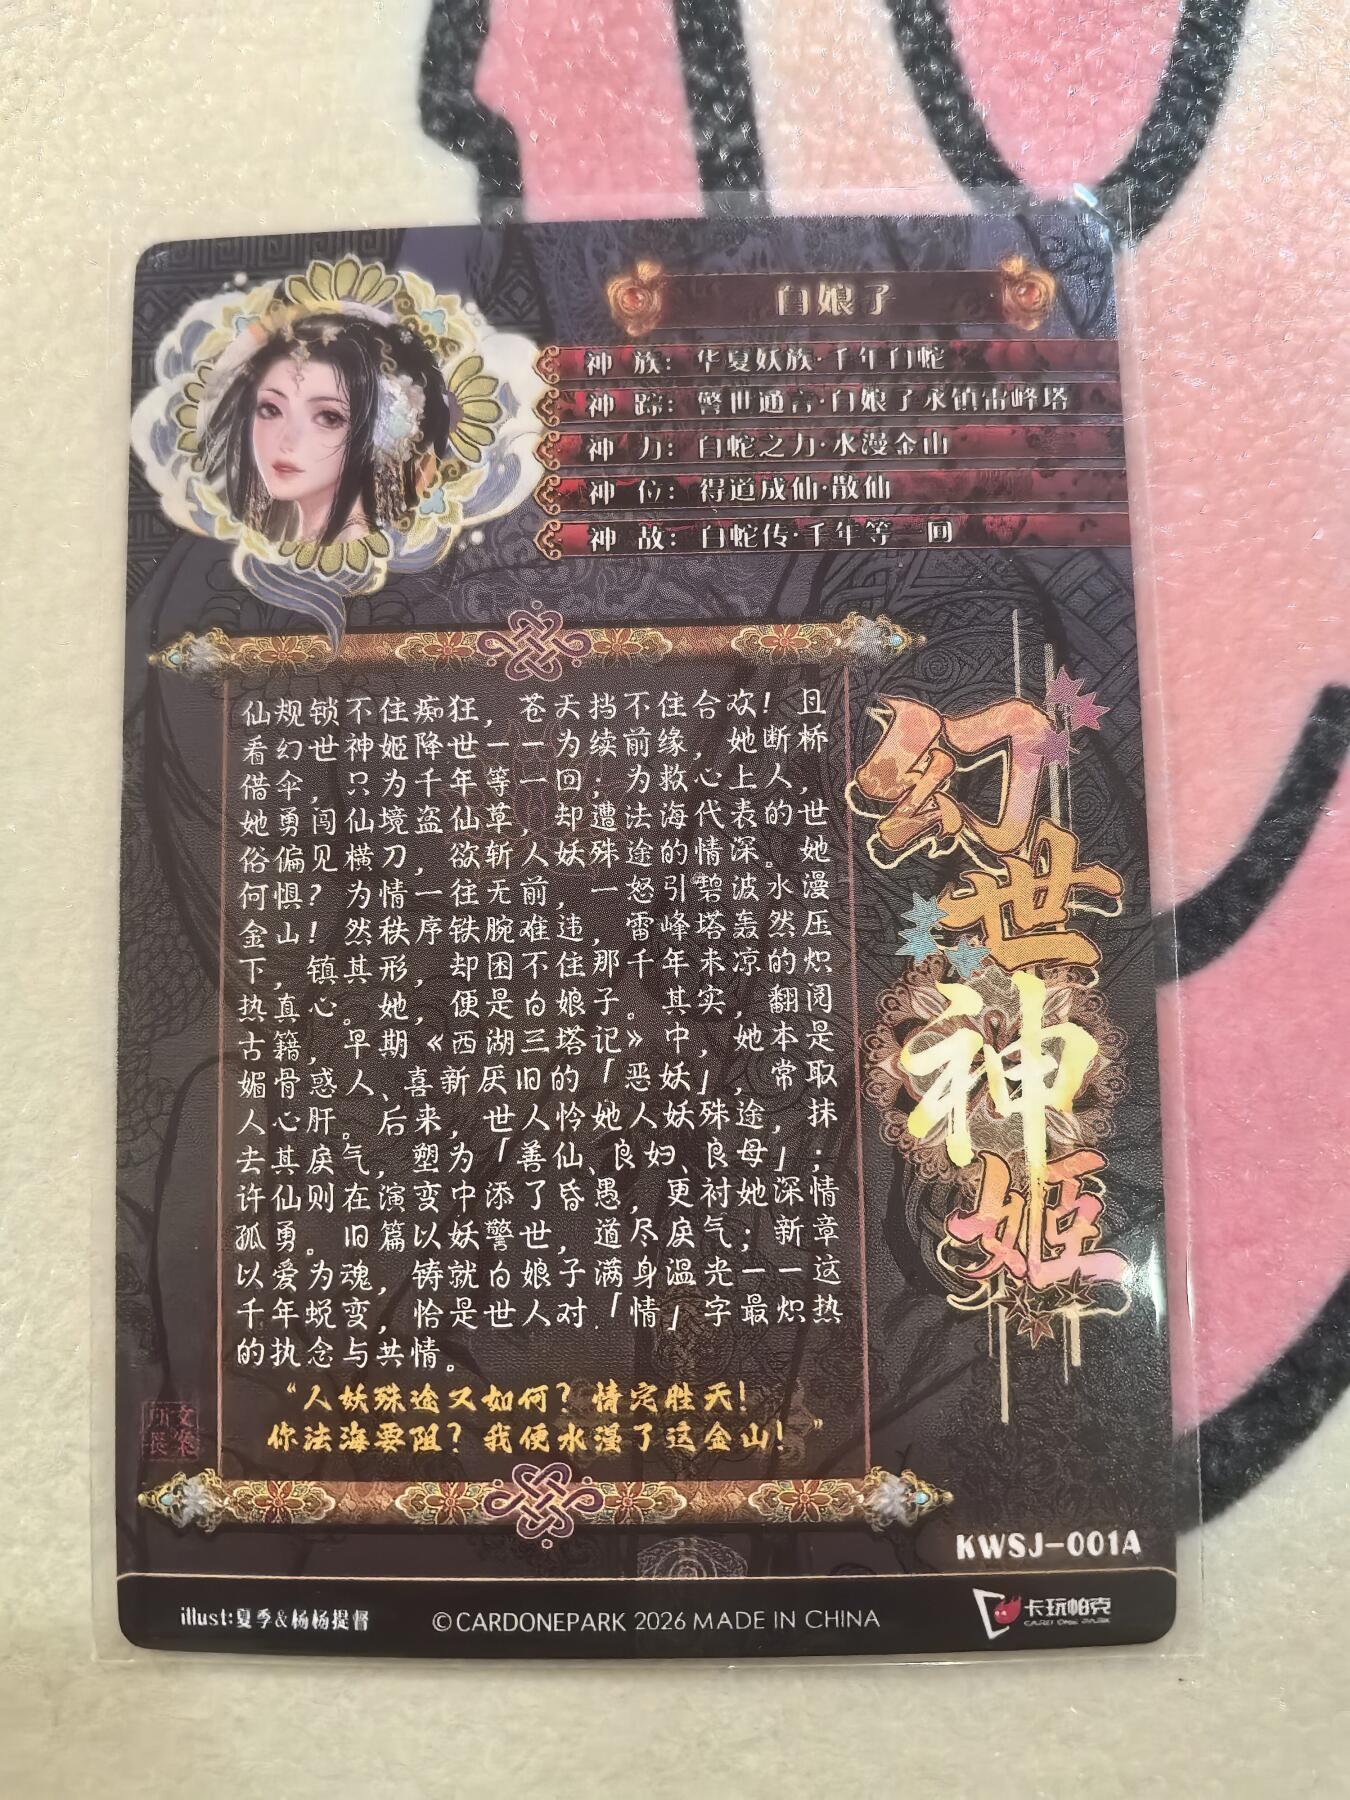 白娘子
神 族：华夏妖族·千年白蛇
神 踪：警世通言·白娘子永镇雷峰塔
神 力：白蛇之力·水漫金山
神 位：得道成仙·散仙
神 故：白蛇传·千年等一回
仙规锁不住痴狂，苍天挡不住合欢！且
看幻世神姬降世——为续前缘，她断桥
借伞，只为千年等一回；为救心上人，
她勇闯仙境盗仙草，却遭法海代表的世
俗偏见横刀，欲斩人妖殊途的情深。她
何惧？为情一往无前，一怒引碧波水漫
金山！然秩序铁腕难违，雷峰塔轰然压
下，镇其形，却困不住那千年未凉的炽
热真心。她，便是白娘子。其实，翻阅
古籍，早期《西湖三塔记》中，她本是
媚骨惑人、喜新厌旧的「恶妖」，常取
人心肝。后来，世人怜她人妖殊途，抹
去其戾气，塑为「善仙、良妇、良母」；
许仙则在演变中添了昏愚，更衬她深情
孤勇。旧篇以妖警世，道尽戾气；新章
以爱为魂，铸就白娘子满身温光——这
千年蜕变，恰是世人对「情」字最炽热
的执念与共情。
“人妖殊途又如何？情定胜天！
你法海要阻？我便水漫了这金山！”
幻世神姬
文案
所長
KWSJ-001A
illust:夏季&杨杨提督
©CARDONEPARK 2026 MADE IN CHINA
卡玩帕克
CARD ONE PARK